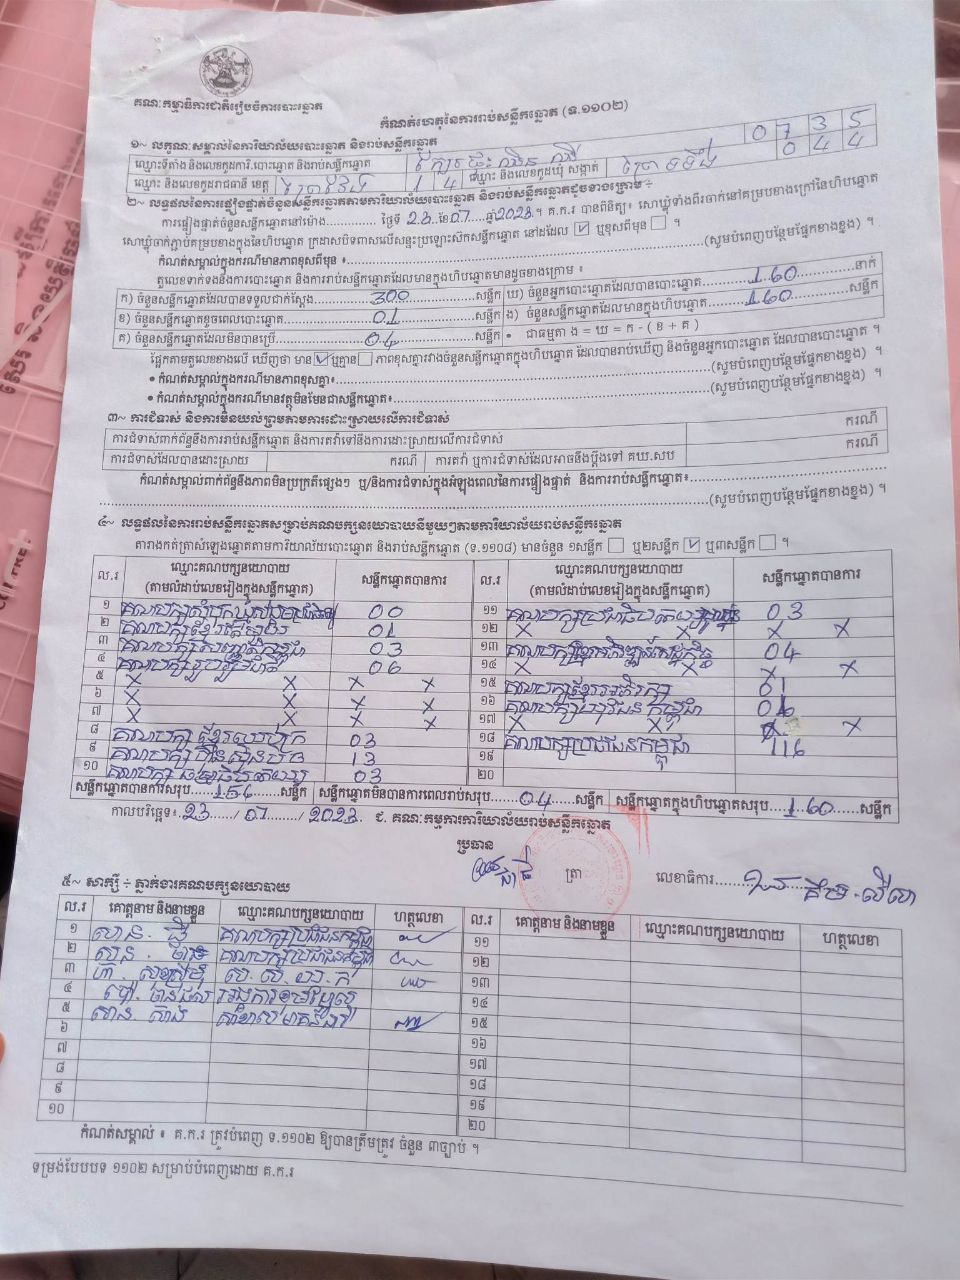 គណៈកម្មាធិការជាតិរៀបចំការបោះឆ្នោត
កំណត់ហេតុនៃការរាប់សន្លឹកឆ្នោត (ទ.១១០២)
១~ លក្ខណៈសម្គាល់នៃការិយាល័យបោះឆ្នោត និងរាប់សន្លឹកឆ្នោត
ឈ្មោះទីតាំង និងលេខកូដការិ.បោះឆ្នោត និងរាប់សន្លឹកឆ្នោត 0 7 3 5
ឈ្មោះ និងលេខកូដរាជធានី ខេត្ត ព្រៃវែង 1 4 ឈ្មោះ និងលេខកូដឃុំ សង្កាត់ 0 4 4
២~ លទ្ធផលនៃការផ្ទៀងផ្ទាត់ចំនួនសន្លឹកឆ្នោតតាមការិយាល័យបោះឆ្នោត និងរាប់សន្លឹកឆ្នោតដូចខាងក្រោម ÷
ការផ្ទៀងផ្ទាត់ចំនួនសន្លឹកឆ្នោតនៅម៉ោង............... ថ្ងៃទី 23 ខែ 07 ឆ្នាំ 2023 ។ គ.ក.រ បានពិនិត្យ៖ សោឃ្លុំទាំងពីរចាក់នៅគម្របខាងក្រៅនៃហិបឆ្នោត
សោឃ្លុំចាក់ភ្ជាប់គម្របខាងក្នុងនៃហិបឆ្នោត ក្រដាសបិទពាសលើសន្ទះប្រឡោះស៊កសន្លឹកឆ្នោត នៅដដែល ☑ ឬខុសពីមុន ☐ ។
កំណត់សម្គាល់ក្នុងករណីមានភាពខុសពីមុន ៖...............(សូមបំពេញបន្ថែមផ្នែកខាងខ្នង) ។
តួលេខទាក់ទងនឹងការបោះឆ្នោត និងការរាប់សន្លឹកឆ្នោតដែលមានក្នុងហិបឆ្នោតមានដូចខាងក្រោម ៖
ក) ចំនួនសន្លឹកឆ្នោតដែលបានទទួលជាក់ស្តែង 300 សន្លឹក ឃ) ចំនួនអ្នកបោះឆ្នោតដែលបានបោះឆ្នោត 160 នាក់
ខ) ចំនួនសន្លឹកឆ្នោតខូចពេលបោះឆ្នោត 01 សន្លឹក ង) ចំនួនសន្លឹកឆ្នោតដែលមានក្នុងហិបឆ្នោត 160 សន្លឹក
គ) ចំនួនសន្លឹកឆ្នោតដែលមិនបានប្រើ 04 សន្លឹក • ជាធម្មតា ង = ឃ = ក - ( ខ + គ )
ផ្អែកតាមតួលេខខាងលើ ឃើញថា មាន ☑ ឬគ្មាន ☐ ភាពខុសគ្នារវាងចំនួនសន្លឹកឆ្នោតក្នុងហិបឆ្នោត ដែលបានរាប់ឃើញ និងចំនួនអ្នកបោះឆ្នោត ដែលបានបោះឆ្នោត ។
• កំណត់សម្គាល់ក្នុងករណីមានភាពខុសគ្នា៖...............(សូមបំពេញបន្ថែមផ្នែកខាងខ្នង) ។
• កំណត់សម្គាល់ក្នុងករណីមានវត្ថុមិនមែនជាសន្លឹកឆ្នោត៖...............(សូមបំពេញបន្ថែមផ្នែកខាងខ្នង) ។
៣~ ការជំទាស់ និងការមិនយល់ព្រមតាមការដោះស្រាយលើការជំទាស់
ការជំទាស់ពាក់ព័ន្ធនឹងការរាប់សន្លឹកឆ្នោត និងការតវ៉ាទៅនឹងការដោះស្រាយលើការជំទាស់ ករណី
ការជំទាស់ដែលបានដោះស្រាយ ករណី ការតវ៉ា ឬការជំទាស់ដែលអាចនឹងប្តឹងទៅ គឃ.សប ករណី
កំណត់សម្គាល់ពាក់ព័ន្ធនឹងភាពមិនប្រក្រតីផ្សេងៗ ឬ/និងការជំទាស់ក្នុងអំឡុងពេលនៃការផ្ទៀងផ្ទាត់ និងការរាប់សន្លឹកឆ្នោត៖...............
...............(សូមបំពេញបន្ថែមផ្នែកខាងខ្នង) ។
៤~ លទ្ធផលនៃការរាប់សន្លឹកឆ្នោតសម្រាប់គណបក្សនយោបាយនីមួយៗតាមការិយាល័យរាប់សន្លឹកឆ្នោត
តារាងកត់ត្រាសំឡេងឆ្នោតតាមការិយាល័យបោះឆ្នោត និងរាប់សន្លឹកឆ្នោត (ទ.១១០៨) មានចំនួន ១សន្លឹក ☐ ឬ២សន្លឹក ☑ ឬ៣សន្លឹក ☐ ។
ល.រ ឈ្មោះគណបក្សនយោបាយ (តាមលំដាប់លេខរៀងក្នុងសន្លឹកឆ្នោត) សន្លឹកឆ្នោតបានការ ល.រ ឈ្មោះគណបក្សនយោបាយ (តាមលំដាប់លេខរៀងក្នុងសន្លឹកឆ្នោត) សន្លឹកឆ្នោតបានការ
១ គណបក្សសំបុកឃ្មុំសង្គមប្រជាធិបតេយ្យ 00 ១១ គណបក្សប្រជាធិបតេយ្យមូលដ្ឋាន 03
២ គណបក្សខ្មែរតែមួយ 01 ១២ X X X X
៣ គណបក្ស កម្ពុជា 03 ១៣ គណបក្សខ្មែរអភិវឌ្ឍន៍សេដ្ឋកិច្ច 04
៤ គណបក្សរួបរួមជាតិ 06 ១៤ X X X
៥ X X X X ១៥ គណបក្សខ្មែរអភិរក្ស 01
៦ X X X X ១៦ គណបក្សយុវជនកម្ពុជា
៧ X X X X ១៧ X X X
៨ គណបក្ស ខ្មែរឈប់ក្រ 03 ១៨ គណបក្សប្រជាជនកម្ពុជា 116
៩ គណបក្ស ហ៊្វុនស៊ិនប៉ិច 13 ១៩
១០ គណបក្ស ធម្មាធិបតេយ្យ 03 ២០
សន្លឹកឆ្នោតបានការសរុប 156 សន្លឹក សន្លឹកឆ្នោតមិនបានការពេលរាប់សរុប 04 សន្លឹក សន្លឹកឆ្នោតក្នុងហិបឆ្នោតសរុប 160 សន្លឹក
កាលបរិច្ឆេទ៖ 23 / 07 / 2023 ជ. គណៈកម្មការការិយាល័យរាប់សន្លឹកឆ្នោត
ប្រធាន
ត្រា លេខាធិការ គឹម.លីហា
៥~ សាក្សី ÷ ភ្នាក់ងារគណបក្សនយោបាយ
ល.រ គោត្តនាម និងនាមខ្លួន ឈ្មោះគណបក្សនយោបាយ ហត្ថលេខា ល.រ គោត្តនាម និងនាមខ្លួន ឈ្មោះគណបក្សនយោបាយ ហត្ថលេខា
១ គណបក្សប្រជាជនកម្ពុជា ១១
២ គណបក្សប្រជាជនកម្ពុជា ១២
៣ ស.ស.យ.ក ១៣
៤ ១៤
៥ ១៥
៦ ១៦
៧ ១៧
៨ ១៨
៩ ១៩
១០ ២០
កំណត់សម្គាល់ ៖ គ.ក.រ ត្រូវបំពេញ ទ.១១០២ ឱ្យបានត្រឹមត្រូវ ចំនួន ៣ច្បាប់ ។
ទម្រង់បែបបទ ១១០២ សម្រាប់បំពេញដោយ គ.ក.រ